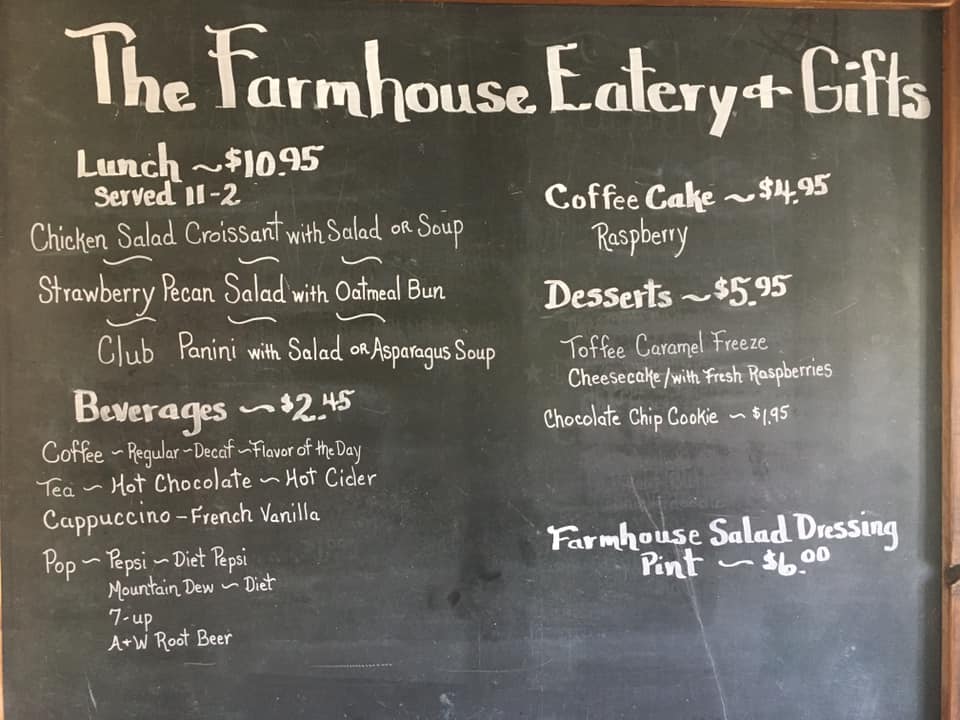 The Farmhouse Eatery + Gifts
Lunch ~ $10.95
Served 11-2
Chicken Salad Croissant with Salad OR Soup
Strawberry Pecan Salad with Oatmeal Bun
Club Panini with Salad OR Asparagus Soup
Beverages ~ $2.45
Coffee ~ Regular ~ Decaf ~ Flavor of the Day
Tea ~ Hot Chocolate ~ Hot Cider
Cappuccino - French Vanilla
Pop ~ Pepsi ~ Diet Pepsi
Mountain Dew ~ Diet
7-up
A+W Root Beer
Coffee Cake ~ $4.95
Raspberry
Desserts ~ $5.95
Toffee Caramel Freeze
Cheesecake/with Fresh Raspberries
Chocolate Chip Cookie ~ $1.95
Farmhouse Salad Dressing
Pint ~ $6.00